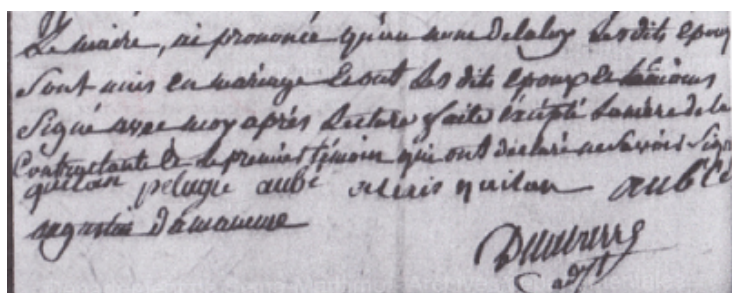 Le maire, ai prononcée qu'au nom de la loy les dits epoux
sont unis en mariage et ont les dits epoux et témoins
Signé avec moy après lecture faite excepté la mère de la
Contractante & le premier témoin qui ont déclaré ne Savoir Sign
pelagie aubé alexis aubé
augustin
adjt